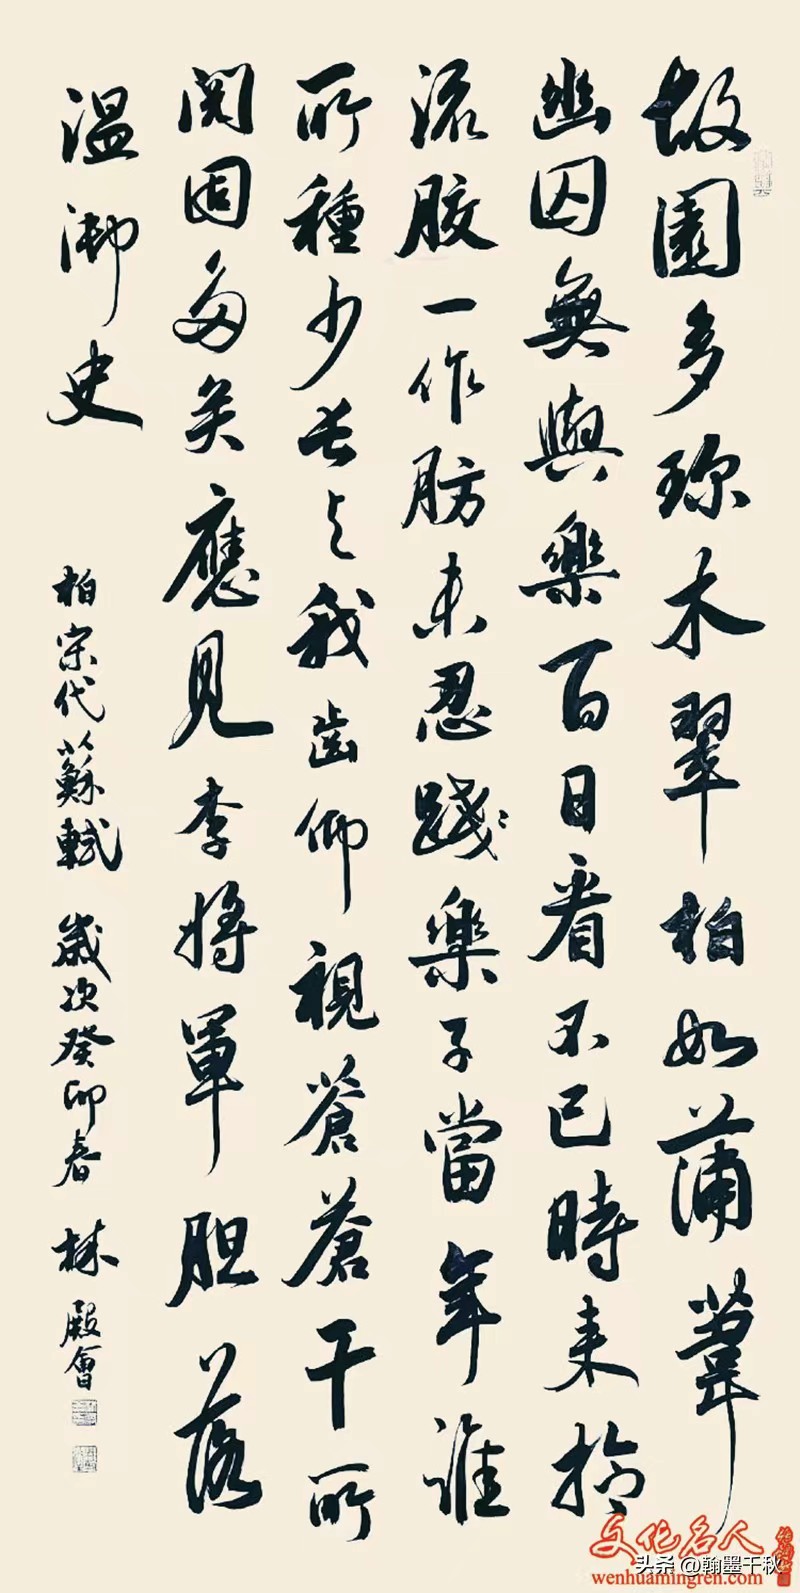 故園多珎木翠柏如蒲葦
幽囚無與樂百日看不已時来拾
流胶一作肪未忍踐樂子當年誰
所種少長与我齒仰視蒼蒼干所
閱固多矣應見李將軍胆落
温御史
柏宋代蘇軾 歲次癸卯春 林殿會
文化名人
头条 @翰墨千秋
wenhuamingren.com